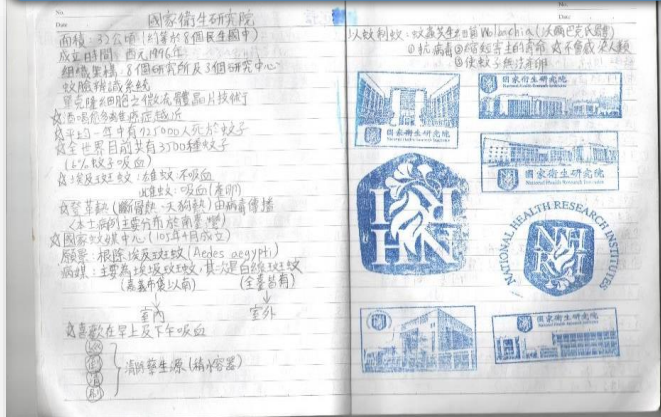 No.
Date
國家衛生研究院
面積：31公頃（約等於8個民生國中）
成立時間：西元1996年
組織架構：8個研究所及3個研究中心
蚊臉辨識系統
單克隆細胞之微流體晶片技術
平均一年中有725000人死於蚊子
☆全世界目前共有3500種蚊子
（6%蚊子吸血）
☆埃及斑蚊：雄蚊：不吸血
雌蚊：吸血（產卵）
☆登革熱（斷骨熱、天狗熱）由病毒傳播
（本土病例主要分布於南臺灣）
☆國家蚊媒中心（105年4月成立）
願景：根除埃及斑蚊（Aedes aegypti）
病媒：主要為埃及斑蚊，其次是白線斑蚊
（嘉義布袋以南）（全臺皆有）
室內 室外
☆喜歡在早上及下午吸血
巡
倒
清
刷
清除孳生源（積水容器）
No.
Date
以蚊制蚊：蚊蟲共生出菌Wolbachia（沃爾巴克氏體）
①抗病毒②縮短寄主的壽命 ☆不會感染人類
③使蚊子無法產卵
國家衛生研究院
National Health Research Institutes
國家衛生研究院
National Health Research Institutes
國家衛生研究院
National Health Research Institutes
NHRI
NATIONAL HEALTH RESEARCH INSTITUTES
NHRI
國家衛生研究院
National Health Research Institutes
國家衛生研究院
National Health Research Institutes